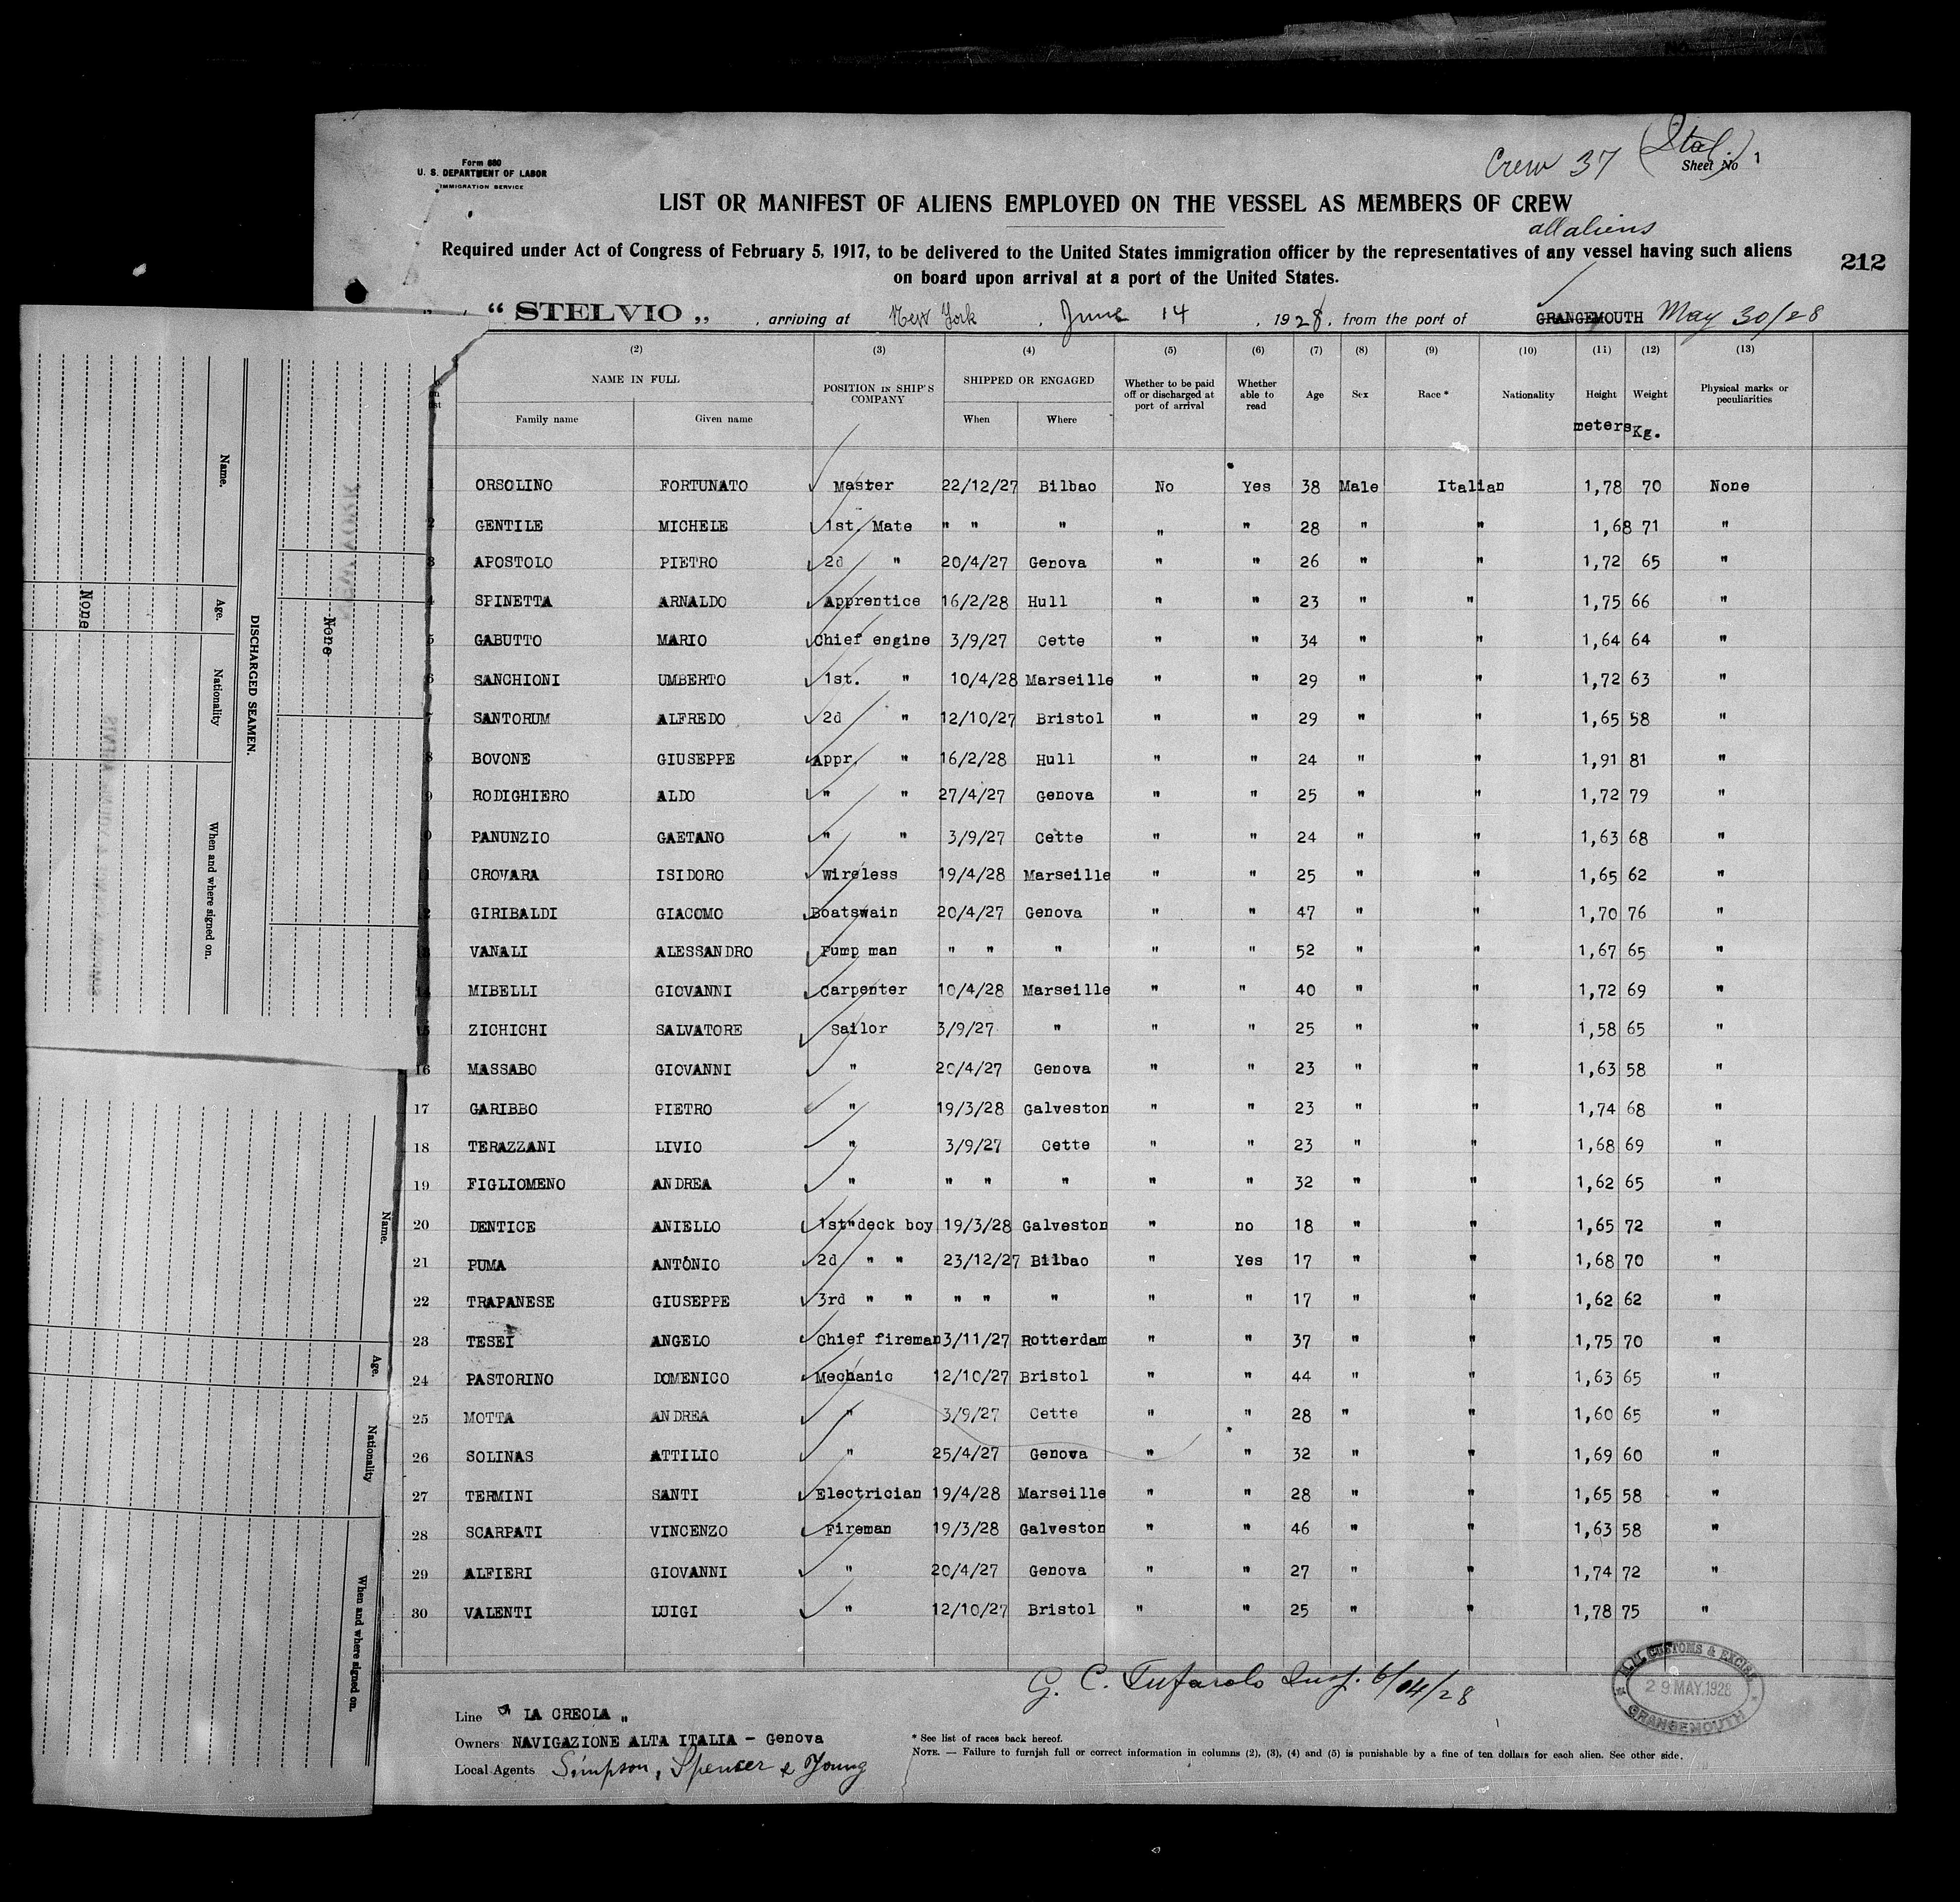 Form 680
U. S. DEPARTMENT OF LABOR
IMMIGRATION SERVICE
Crew 37 (Ital.)
Sheet No 1
LIST OR MANIFEST OF ALIENS EMPLOYED ON THE VESSEL AS MEMBERS OF CREW
all aliens
Required under Act of Congress of February 5, 1917, to be delivered to the United States immigration officer by the representatives of any vessel having such aliens
on board upon arrival at a port of the United States.
212
“ STELVIO „ , arriving at New York , June 14 , 1928, from the port of GRANGEMOUTH May 30/28
(2) (3) (4) (5) (6) (7) (8) (9) (10) (11) (12) (13)
NAME IN FULL POSITION IN SHIP'S COMPANY SHIPPED OR ENGAGED Whether to be paid off or discharged at port of arrival Whether able to read Age Sex Race * Nationality Height Weight Physical marks or peculiarities
Family name Given name When Where meters Kg.
ORSOLINO FORTUNATO Master 22/12/27 Bilbao No Yes 38 Male Italian 1,78 70 None
2 GENTILE MICHELE 1st. Mate " " " " " 28 " " 1,68 71 "
3 APOSTOLO PIETRO 2d " 20/4/27 Genova " " 26 " " 1,72 65 "
4 SPINETTA ARNALDO Apprentice 16/2/28 Hull " " 23 " " 1,75 66 "
5 GABUTTO MARIO Chief engine 3/9/27 Cette " " 34 " " 1,64 64 "
6 SANCHIONI UMBERTO 1st. " 10/4/28 Marseille " " 29 " " 1,72 63 "
7 SANTORUM ALFREDO 2d " 12/10/27 Bristol " " 29 " " 1,65 58 "
8 BOVONE GIUSEPPE Appr. " 16/2/28 Hull " " 24 " " 1,91 81 "
9 RODIGHIERO ALDO " " 27/4/27 Genova " " 25 " " 1,72 79 "
0 PANUNZIO GAETANO " " 3/9/27 Cette " " 24 " " 1,63 68 "
1 CROVARA ISIDORO Wireless 19/4/28 Marseille " " 25 " " 1,65 62 "
2 GIRIBALDI GIACOMO Boatswain 20/4/27 Genova " " 47 " " 1,70 76 "
13 VANALI ALESSANDRO Pump man " " " " " 52 " " 1,67 65 "
14 MIBELLI GIOVANNI Carpenter 10/4/28 Marseille " " 40 " " 1,72 69 "
15 ZICHICHI SALVATORE Sailor 3/9/27 " " " 25 " " 1,58 65 "
16 MASSABO GIOVANNI " 20/4/27 Genova " " 23 " " 1,63 58 "
17 GARIBBO PIETRO " 19/3/28 Galveston " " 23 " " 1,74 68 "
18 TERAZZANI LIVIO " 3/9/27 Cette " " 23 " " 1,68 69 "
19 FIGLIOMENO ANDREA " " " " " " 32 " " 1,62 65 "
20 DENTICE ANIELLO 1st"deck boy 19/3/28 Galveston " no 18 " " 1,65 72 "
21 PUMA ANTONIO 2d " " 23/12/27 Bilbao " Yes 17 " " 1,68 70 "
22 TRAPANESE GIUSEPPE 3rd " " " " " " " 17 " " 1,62 62 "
23 TESEI ANGELO Chief fireman 3/11/27 Rotterdam " " 37 " " 1,75 70 "
24 PASTORINO DOMENICO Mechanic 12/10/27 Bristol " " 44 " " 1,63 65 "
25 MOTTA ANDREA " 3/9/27 Cette " " 28 " " 1,60 65 "
26 SOLINAS ATTILIO " 25/4/27 Genova " " 32 " " 1,69 60 "
27 TERMINI SANTI Electrician 19/4/28 Marseille " " 28 " " 1,65 58 "
28 SCARPATI VINCENZO Fireman 19/3/28 Galveston " " 46 " " 1,63 58 "
29 ALFIERI GIOVANNI " 20/4/27 Genova " " 27 " " 1,74 72 "
30 VALENTI LUIGI " 12/10/27 Bristol " " 25 " " 1,78 75 "
G. C. Tufarolo Insp. 6/14/28
H.M. CUSTOMS & EXCISE
29 MAY.1928
GRANGEMOUTH
Line " LA CREOLA „
Owners NAVIGAZIONE ALTA ITALIA - Genova
Local Agents Simpson, Spencer & Young
* See list of races back hereof.
NOTE. — Failure to furnish full or correct information in columns (2), (3), (4) and (5) is punishable by a fine of ten dollars for each alien. See other side.
None
DISCHARGED SEAMEN.
Name. Age. Nationality When and where signed on.
None
Name. Age. Nationality When and where signed on.